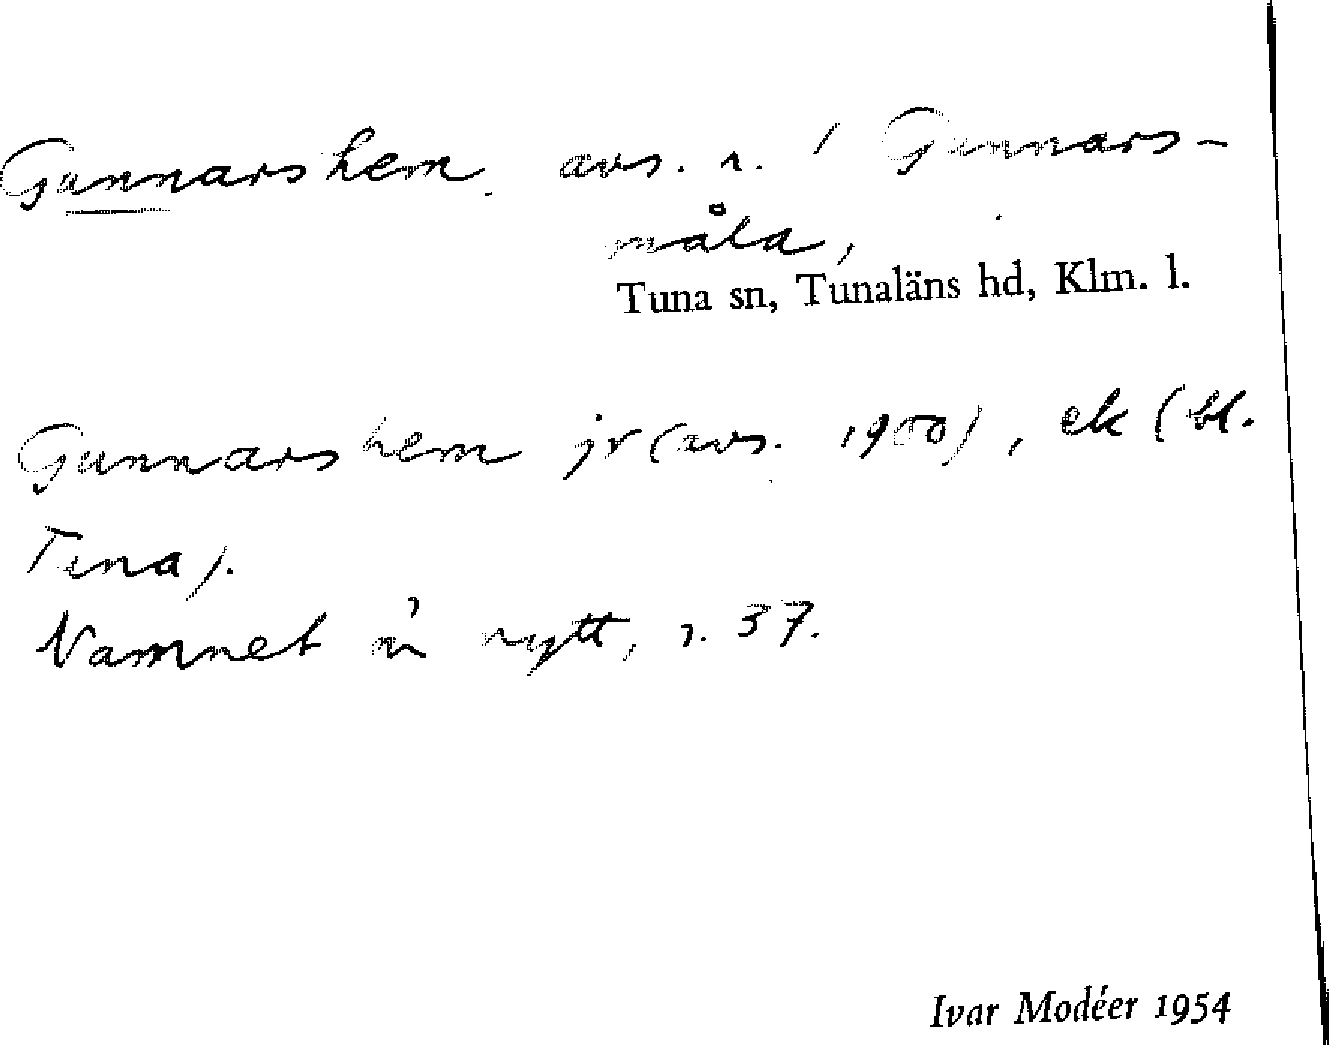 Gunnarshem, avs. s. i Gunnars-
måla,
Tuna sn, Tunaläns hd, Klm. l.
Gunnarshem jr (avs. 1900), ek (bl.
Tuna).
Namnet är nytt, s. 37.
Ivar Modéer 1954